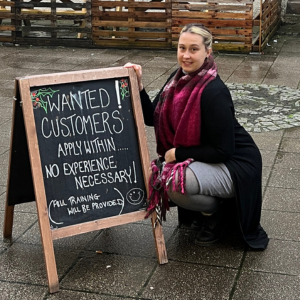 WANTED!
CUSTOMERS
APPLY WITHIN....
NO EXPERIENCE
NECESSARY!
(FULL TRAINING
WILL BE PROVIDED)